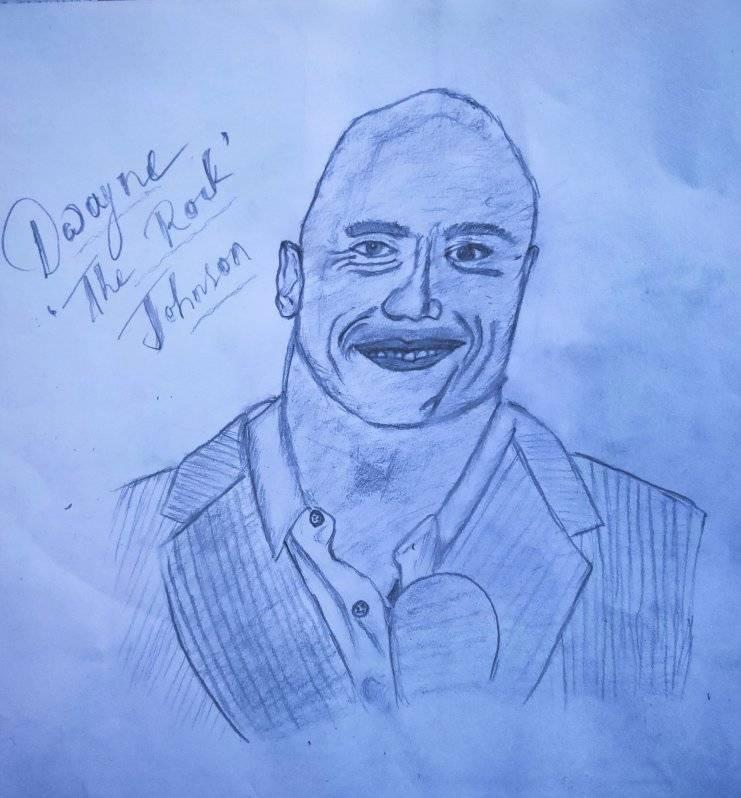 Dwayne
'The Rock'
Johnson